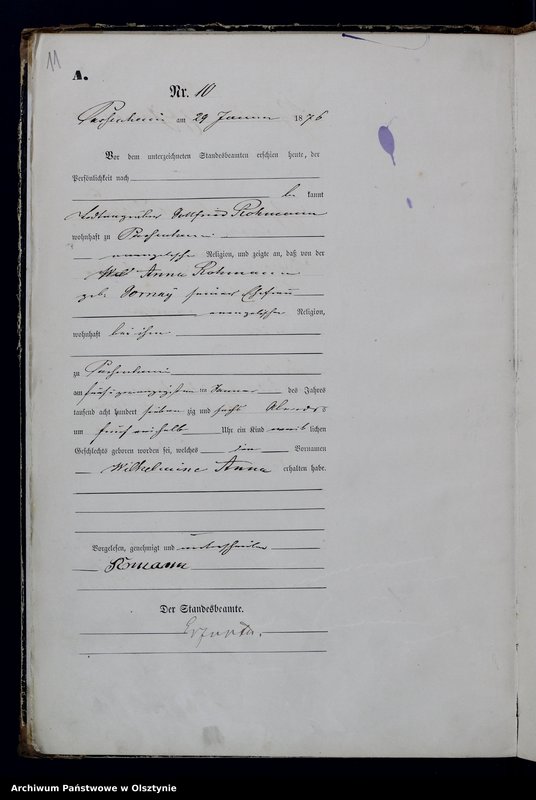 11
A.
Nr. 10
Passenheim am 29 Januar 1876
Vor dem unterzeichneten Standesbeamten erschien heute, der
Persönlichkeit nach
be kannt
Gottfried Rohmann
wohnhaft zu Passenheim
evangelischer Religion, und zeigte an, daß von der
Anna Rohmann
geb. seiner Ehefrau
evangelischer Religion,
wohnhaft bei ihm
zu Passenheim
am fünfundzwanzigsten ten Januar des Jahres
tausend acht hundert sieben zig und sechs Abends
um Uhr ein Kind weib lichen
Geschlechts geboren worden sei, welches die Vornamen
Wilhelmine Anna erhalten habe.
Vorgelesen, genehmigt und unterschrieben
Der Standesbeamte.
Archiwum Państwowe w Olsztynie